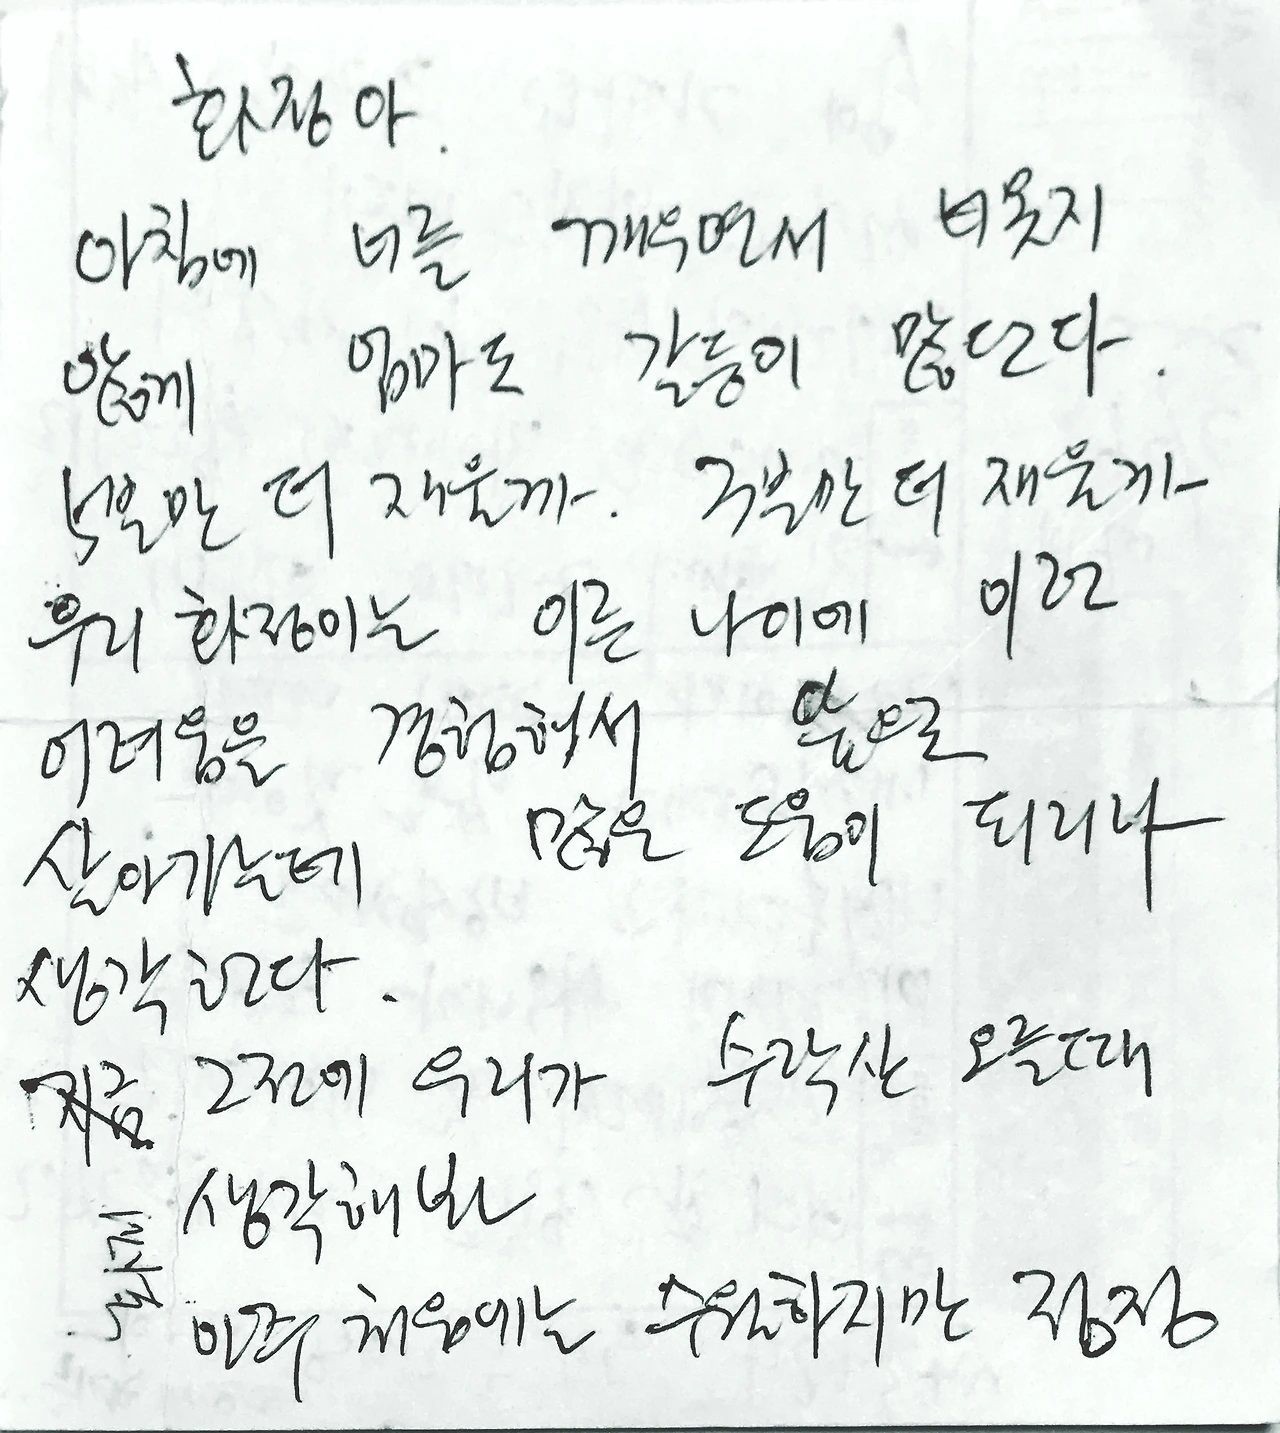 화정아.
아침에 너를 깨우면서 너 못지
않게 엄마도 갈등이 많단다.
5분만 더 재울까. 구분만 더 재울까
우리 화정이는 이른 나이에 이런
어려움을 경험해서 앞으로
살아가는데 많은 도움이 되리라
생각한다.
지금 그전에 우리가 수락산 오를때
생각해봐
아주 처음에는 수월하지만 점점